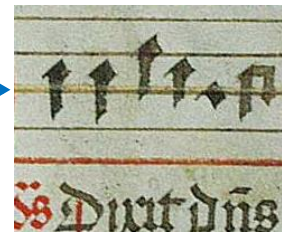 Dixit dñs